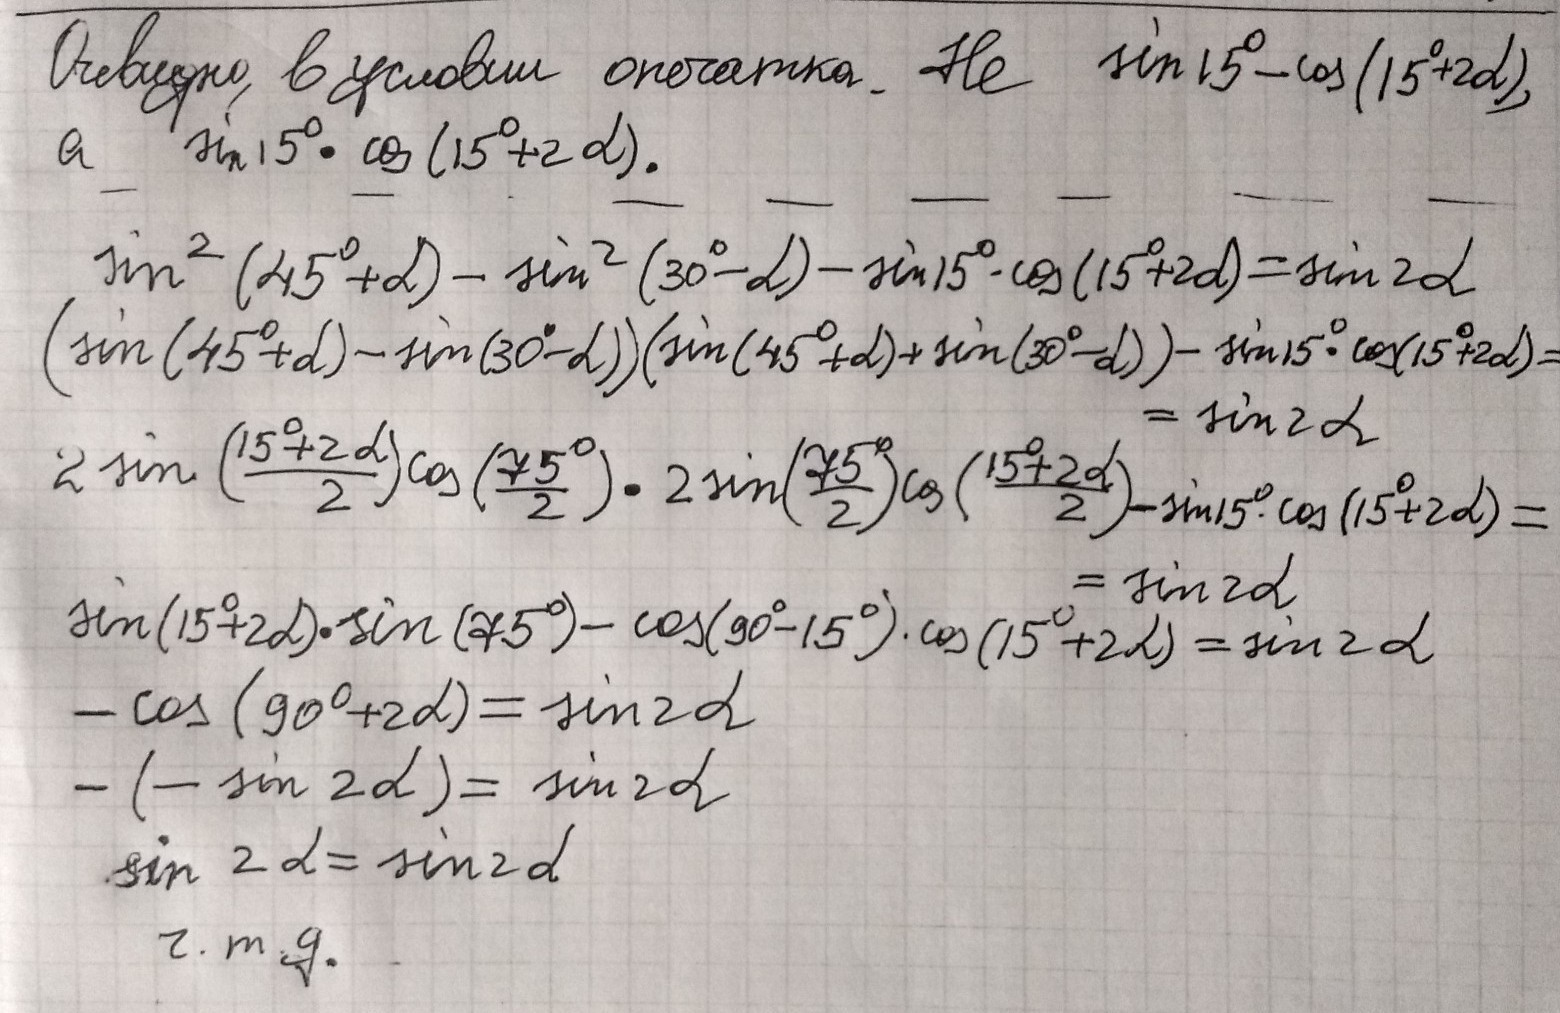 Очевидно, в условии опечатка. Не sin15°-cos(15°+2α),
а sin15°·cos(15°+2α).
sin²(45°+α)-sin²(30°-α)-sin15°·cos(15°+2α)=sin2α
(sin(45°+α)-sin(30°-α))(sin(45°+α)+sin(30°-α))-sin15°·cos(15°+2α)=
=sin2α
2sin((15°+2α)/2)cos(75°/2)·2sin(75°/2)cos((15°+2α)/2)-sin15°·cos(15°+2α)=
=sin2α
sin(15°+2α)·sin(75°)-cos(90°-15°)·cos(15°+2α)=sin2α
-cos(90°+2α)=sin2α
-(-sin2α)=sin2α
sin2α=sin2α
ч.т.д.